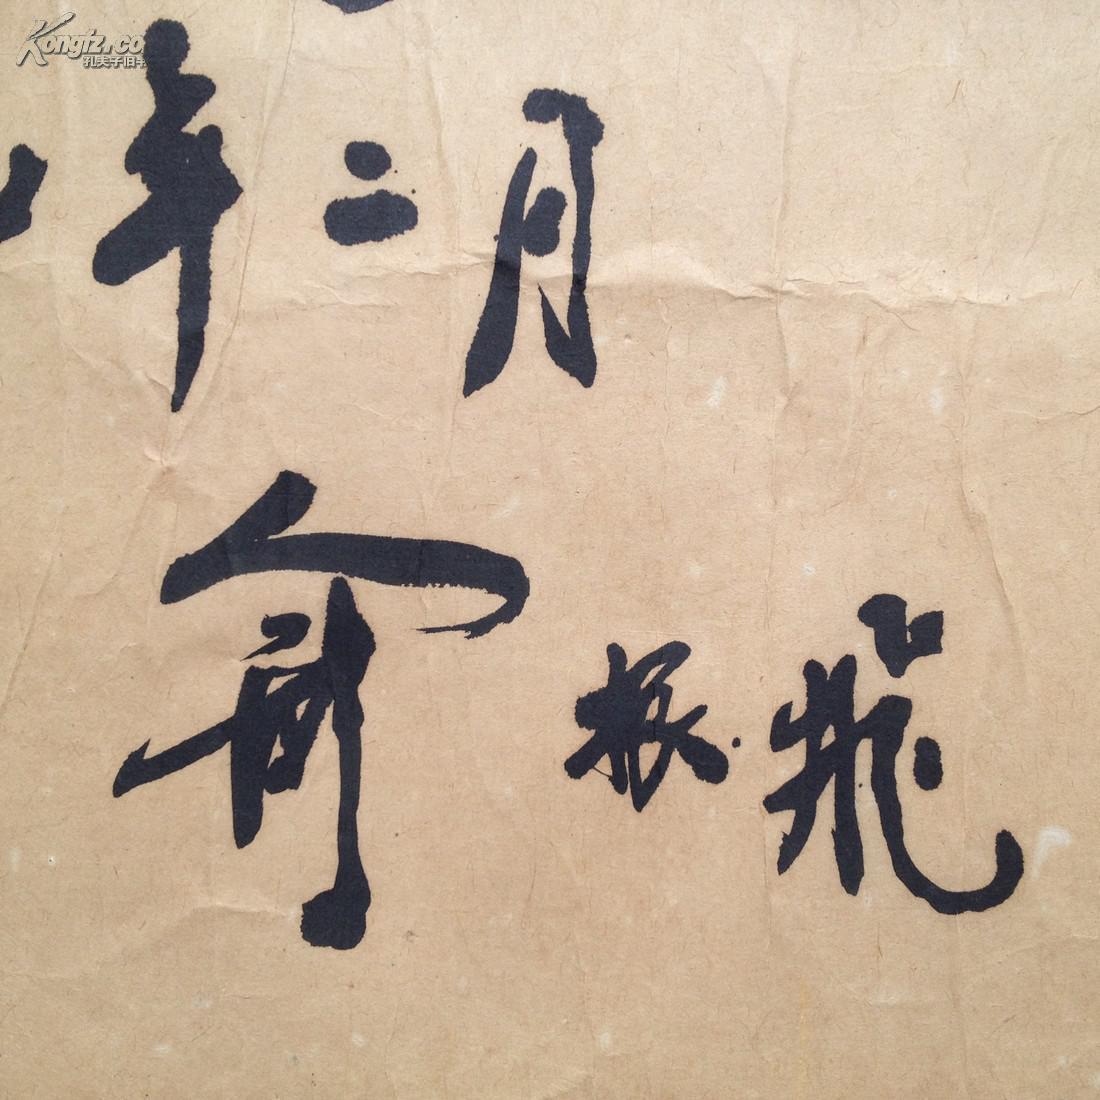 Kongfz.co
孔夫子旧书
年二月
俞振飛